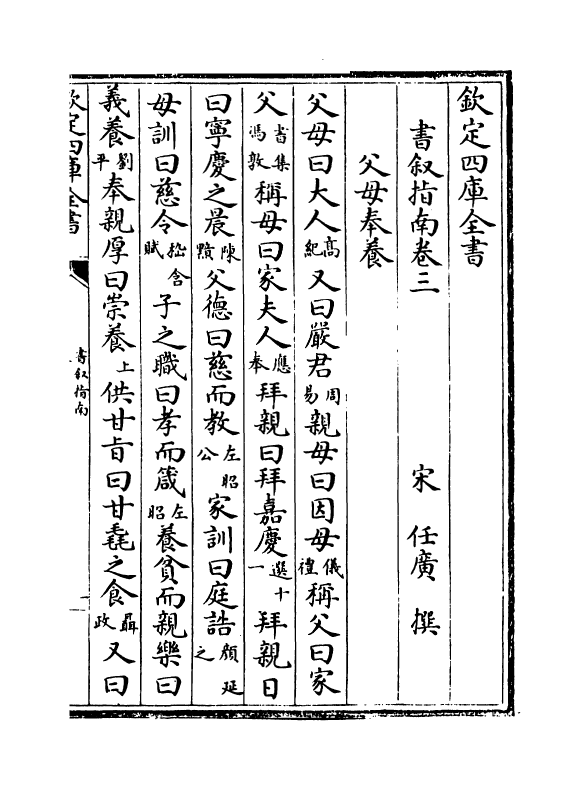 欽定四庫全書
書叙指南卷三
宋 任廣 撰
父母奉養
父母曰大人高紀又曰嚴君周易親母曰因母儀禮稱父曰家
父書集馮敦稱母曰家夫人應奉拜親曰拜嘉慶選十一拜親日
曰寧慶之晨陳䪼父德曰慈而教左昭公家訓曰庭誥顔延之
母訓曰慈令嵇含賦子之職曰孝而箴左昭養貧而親樂曰
義養劉平奉親厚曰崇養上供甘旨曰甘毳之食聶政又曰
欽定四庫全書
書叙指南
一